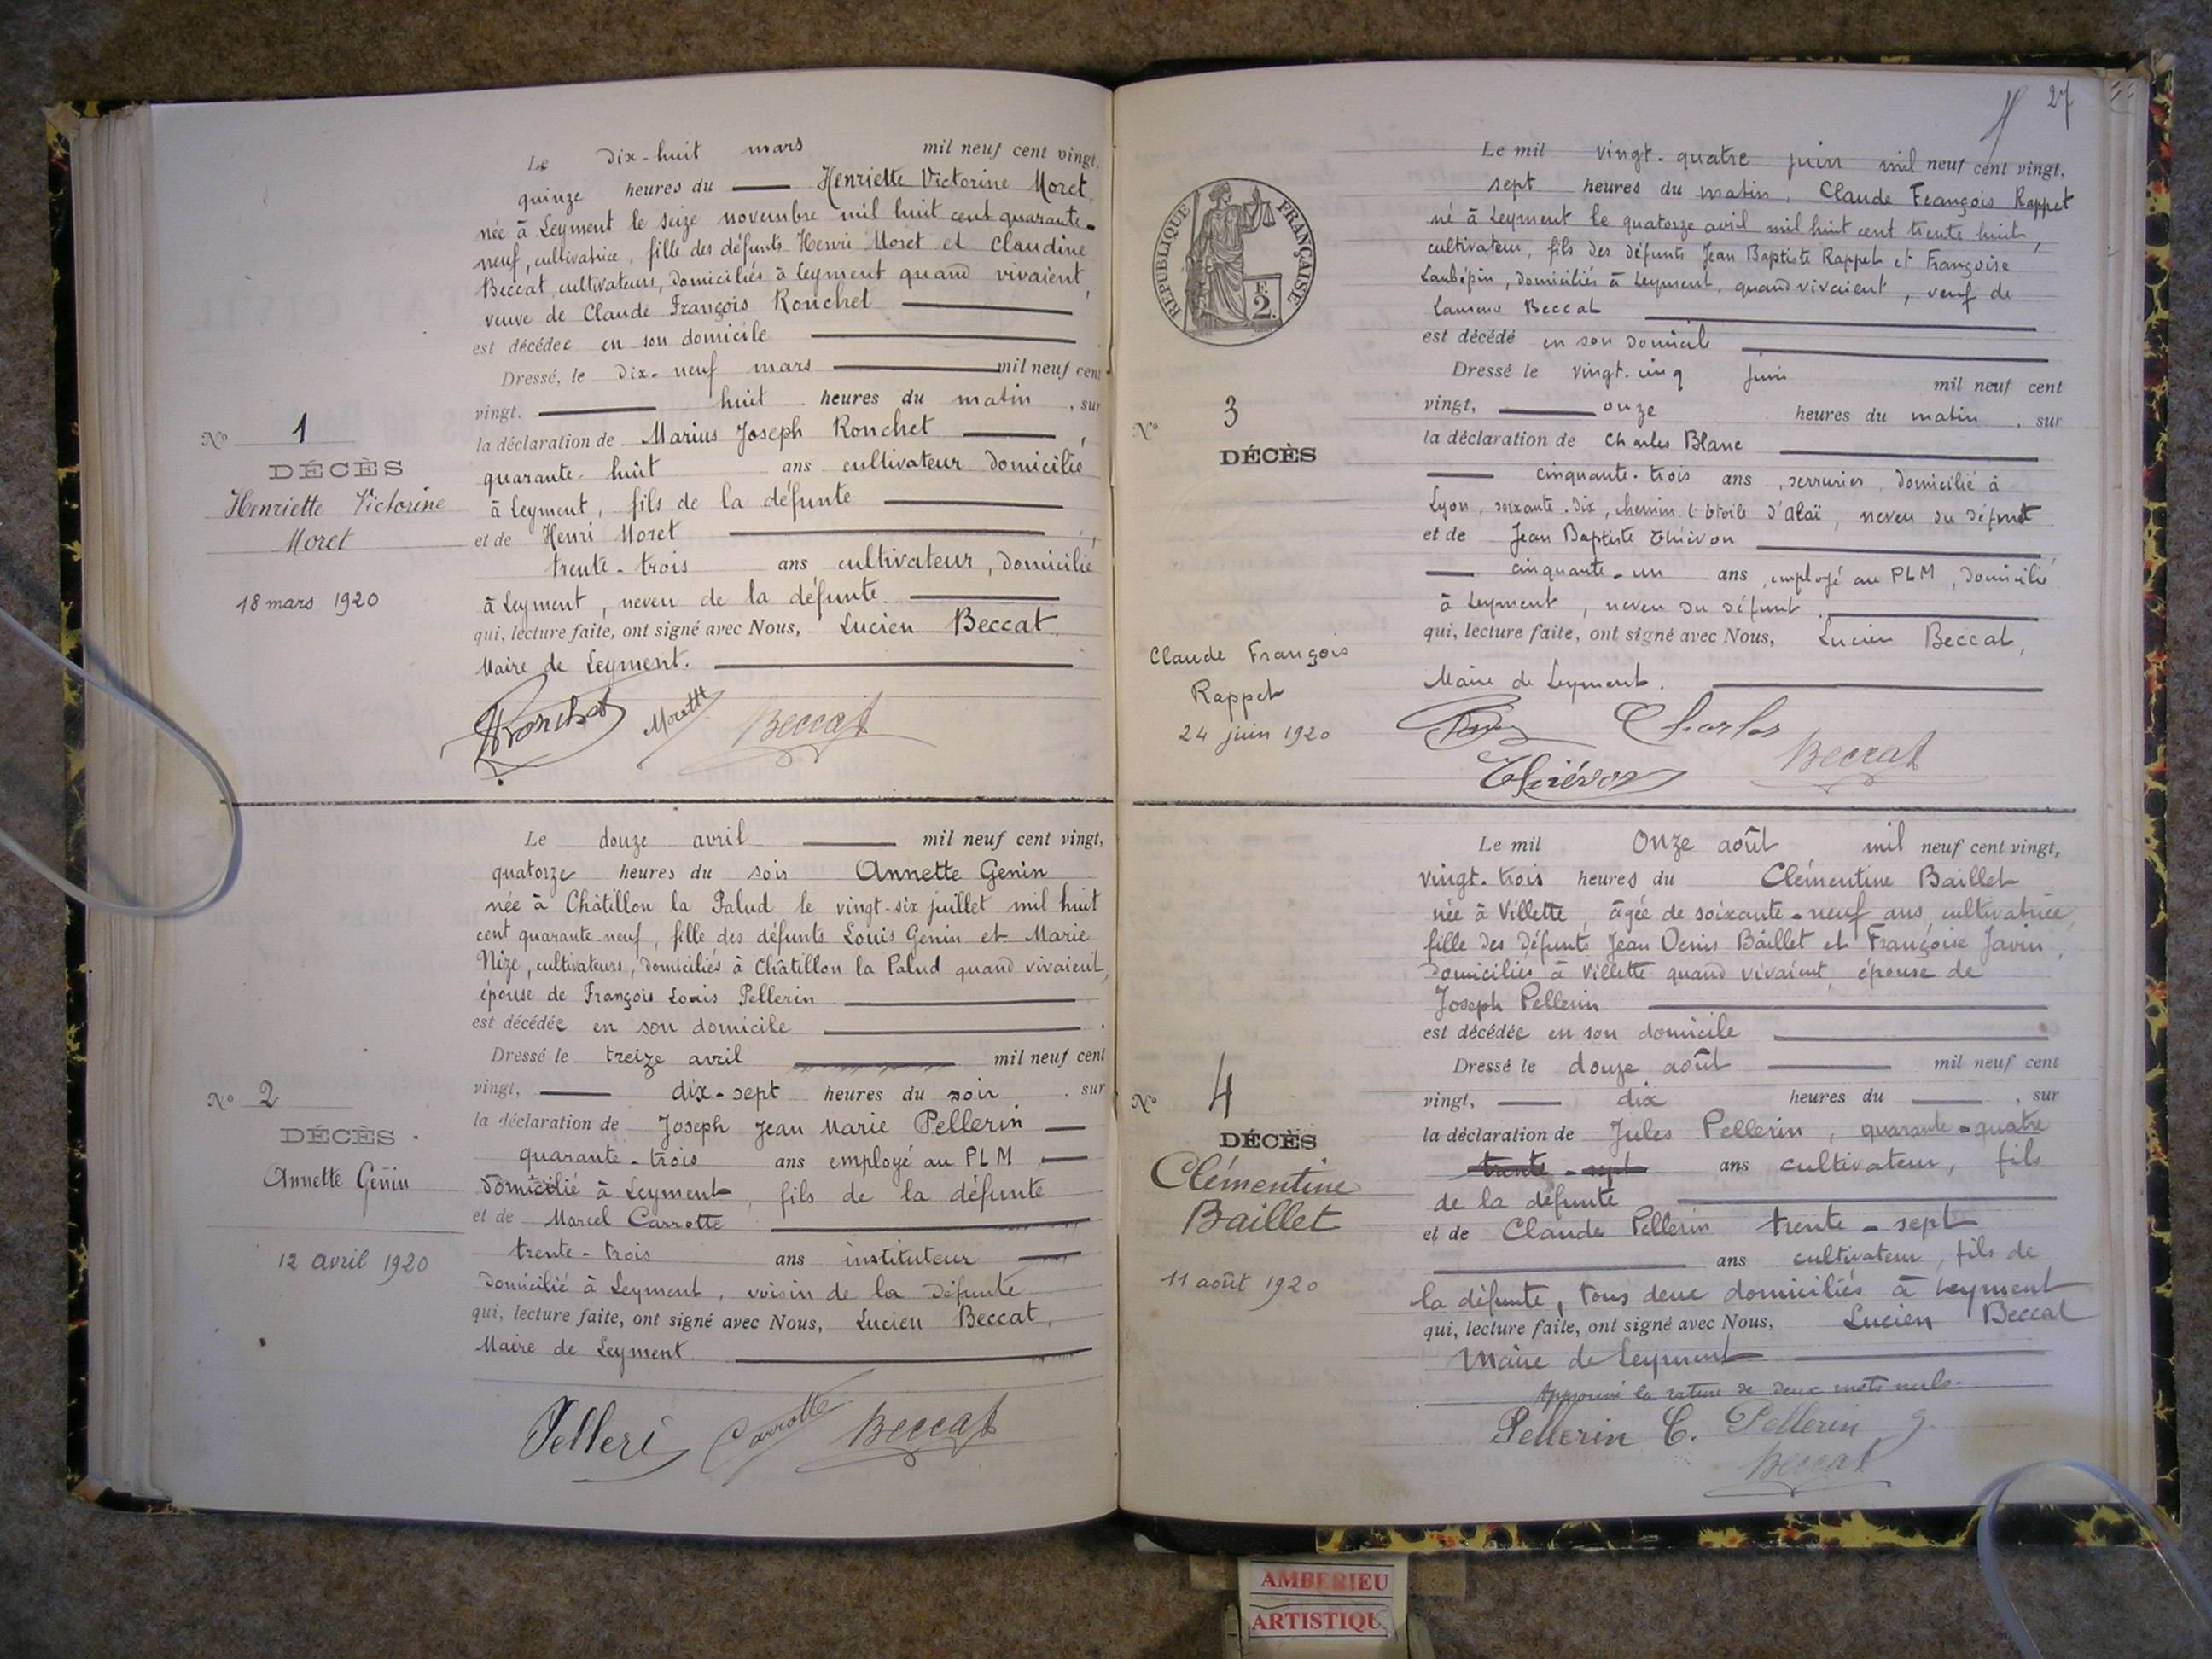 Le dix-huit mars mil neuf cent vingt,
quinze heures du Henriette Victorine Moret,
née à Leyment le seize novembre mil huit cent quarante-
neuf, cultivatrice, fille des défunts Henri Moret et Claudine
Beccat, cultivateurs, domiciliés à Leyment quand vivaient,
veuve de Claude François Ronchet
est décédée en son domicile
Dressé, le dix-neuf mars mil neuf cent
vingt. huit heures du matin, sur
la déclaration de Marius Joseph Ronchet,
quarante-huit ans cultivateur domicilié
à Leyment, fils de la défunte
et de Henri Moret,
trente-trois ans cultivateur, domicilié
à Leyment, neveu de la défunte
qui, lecture faite, ont signé avec Nous, Lucien Beccat.
Maire de Leyment.
Ronchet Moret Beccat
No 1
DÉCÈS
Henriette Victorine
Moret
18 mars 1920
Le douze avril mil neuf cent vingt,
quatorze heures du soir Annette Genin
née à Châtillon la Palud le vingt-six juillet mil huit
cent quarante-neuf, fille des défunts Louis Genin et Marie
Nize, cultivateurs, domiciliés à Châtillon la Palud quand vivaient,
épouse de François Louis Pellerin
est décédée en son domicile.
Dressé le treize avril mil neuf cent
vingt, dix-sept heures du soir. sur
la déclaration de Joseph Jean Marie Pellerin
quarante-trois ans employé au PLM
domicilié à Leyment, fils de la défunte
et de Marcel Carrotte
trente-trois ans instituteur
domicilié à Leyment, voisin de la défunte
qui, lecture faite, ont signé avec Nous, Lucien Beccat,
Maire de Leyment.
Pelleri Carrotte Beccat
No 2
DÉCÈS.
Annette Genin
12 avril 1920
27
Le mil vingt-quatre juin mil neuf cent vingt,
sept heures du matin, Claude François Rappet
né à Leyment le quatorze avril mil huit cent trente huit,
cultivateur, fils des défunts Jean Baptiste Rappet et Françoise
Laubépin, domiciliés à Leyment, quand vivaient, veuf de
Beccat
est décédé en son domicile
Dressé le vingt-cinq juin mil neuf cent
vingt, onze heures du matin, sur
la déclaration de Charles Blanc
cinquante-trois ans, serrurier, domicilié à
Lyon, soixante-dix, chemin l'étoile d'Alaï, neveu du défunt
et de Jean Baptiste Thiévon
cinquante-un ans, employé au PLM, domicilié
à Leyment, neveu du défunt.
qui, lecture faite, ont signé avec Nous, Lucien Beccat,
Maire de Leyment.
Charles
Thiévon Beccat
RÉPUBLIQUE FRANÇAISE
F.
2.
No 3
DÉCÈS
Claude François
Rappet
24 juin 1920
Le mil onze août mil neuf cent vingt,
vingt-trois heures du Clémentine Baillet
née à Villette, âgée de soixante-neuf ans, cultivatrice,
fille des défunts Jean Denis Baillet et Françoise Javin,
domiciliés à Villette quand vivaient, épouse de
Joseph Pellerin
est décédée en son domicile
Dressé le douze août mil neuf cent
vingt, dix heures du, sur
la déclaration de Jules Pellerin, quarante-quatre
trente-sept ans cultivateur, fils
de la défunte
et de Claude Pellerin trente-sept
ans cultivateur, fils de
la défunte, tous deux domiciliés à Leyment
qui, lecture faite, ont signé avec Nous, Lucien Beccat
Maire de Leyment
Approuvé la rature de deux mots nuls.
Pellerin C. Pellerin J.
Beccat
No 4
DÉCÈS
Clémentine
Baillet
11 août 1920
AMBERIEU
ARTISTIQU